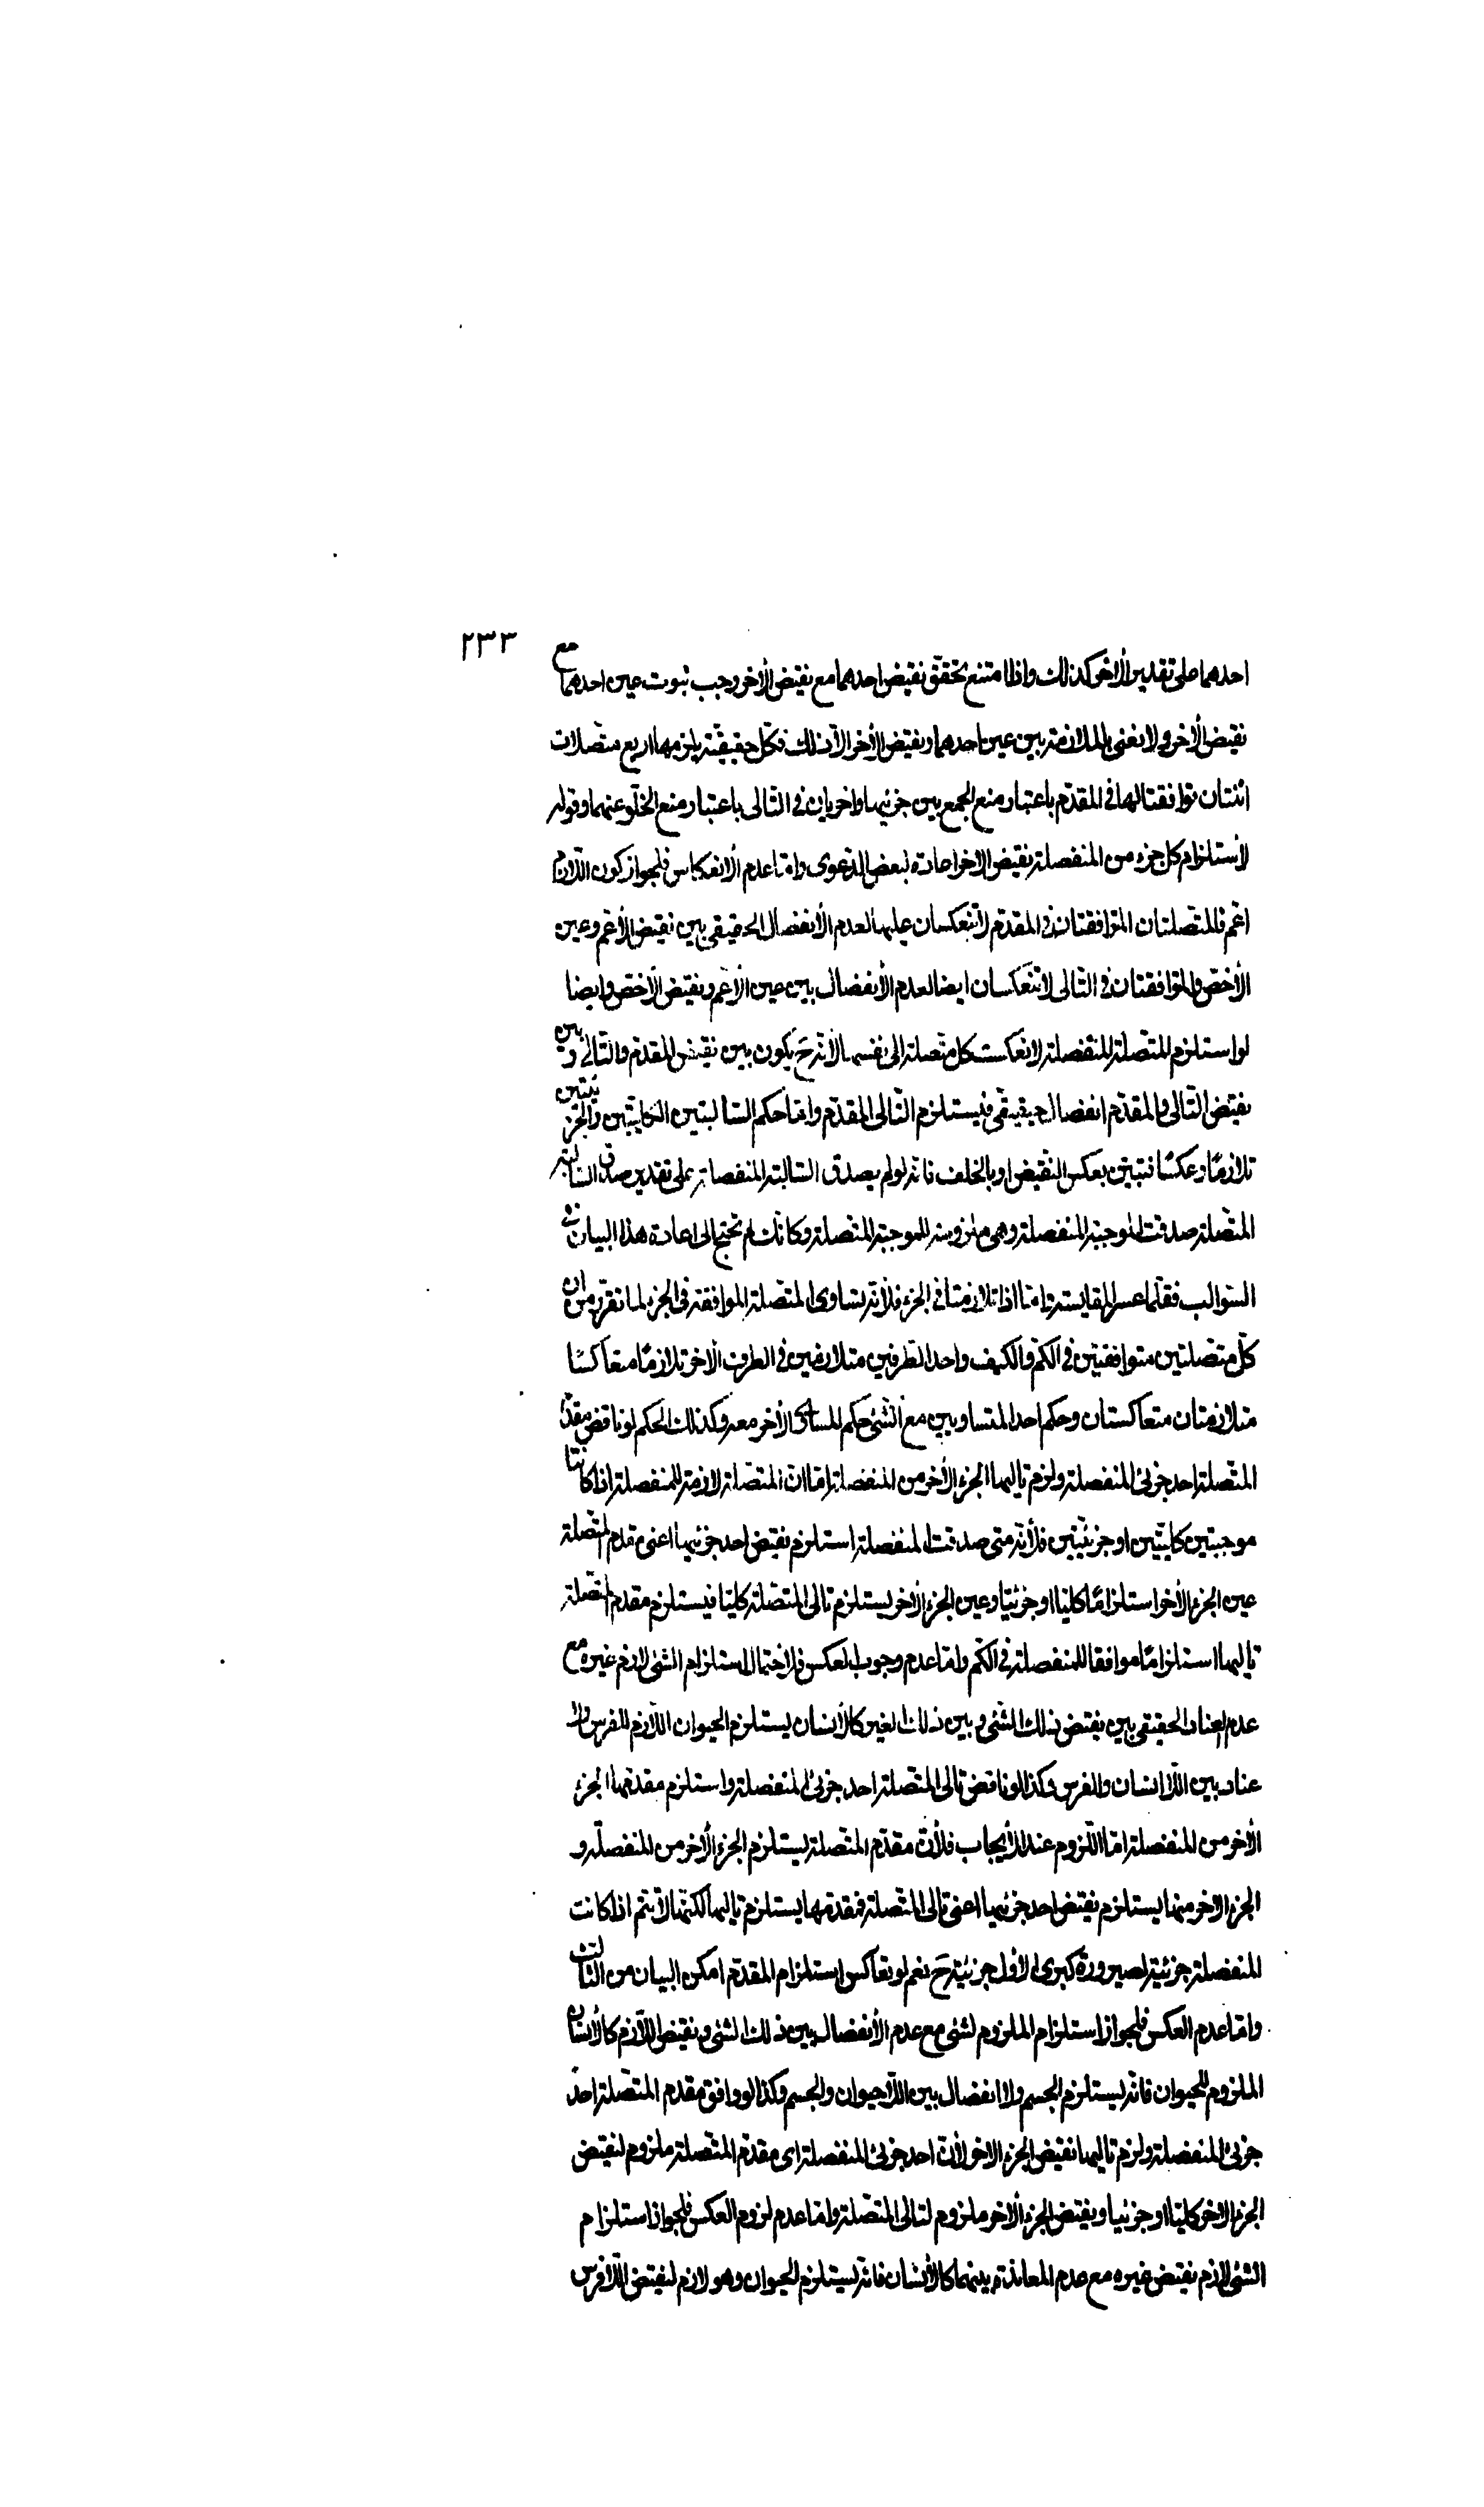 ٢٣٣
احدهما على تقدير الأخر كذلك واذا امتنع تحقق نقيض احدهما مع نقيض الأخر وجب ثبوت عين احدهما مع
نقيض الأخر ولا نعنى بالملازمة بين عين احدهما ونقيض الأخر الا ذلك فكل حقيقية يلزمها اربع متصلات
اثنتان توافقتا لها فى المقدّم باعتبار منع الجمع بين جزئيها واخريان فى التالى باعتبار منع الخلوّ عنهما وقوله
لأستلزام كل جزء من المنفصلة نقيض الاخر اعادة لبعض الدعوى وامّا عدم الأنعكاس فلجواز كون اللازم
اعمّ فالمتصلتان المتوافقتان فى المقدّم لا تنعكسان عليها لعدم الأنفصال الحقيقى بين نقيض الأعم وعين
الأخصّ والمتوافقتان فى التالى لا تنعكسان ايضا لعدم الأنفصال بين عين الأعمّ ونقيض الأخصّ وايضا
لو استلزم المتّصلة المنفصلة لانعكست كل متصلة الى نفسها لأنّه ح يكون بين نقيض المقدّم والتالى وبين
نقيض التالى والمقدّم انفصال حقيقىّ فيستلزم التالى المقدّم وامّا حكم السّالبتين الكليتين والجزئيتين
تلازمًا وعكسًا فتبيّن بعكس النقيض او بالخلف فانه لو لم يصدق السّالبة المنفصلة على تقدير صدق السّالبة
المتّصلة صدقت الموجبة المنفصلة وهى ملزومة للموجبة المتّصلة وكانّك لم تحتج الى اعادة هذا البيان فى
السّوالب فقلّما عسر المقايسة وامّا اذا تلازمتا فى الجزء فلأنّه تساوى المتّصلة الموافقة فى الجزء لما تقرّر من ان
كلّ متصلتين متوافقتين فى الكمّ والكيف واحد الطرفين متلازمين فى الطرف الأخر تلازمًا متعاكسًا
متلازمتان متعاكستان وحكم احد المتساويين مع الشئ حكم المساوى الأخر معه وكذلك الحكم لو ناقض مقدّم
المتّصلة احد جزئى المنفصلة ولزم تاليها الجزء الأخر من المنفصلة امّا انّ المتّصلة لازمة للمنفصلة اذا كانتا
موجبتين كليّتين او جزئيّتين فلأنّه متى صدقت المنفصلة استلزم نقيض احد جزئيها اعنى مقدم المتّصلة
عين الجزء الأخر استلزامًا كليّا او جزئيّا وعين الجزء الأخر يستلزم تالى المتّصلة كليّا فيستلزم مقدم المتّصلة
تاليها استلزامًا موافقا للمنفصلة فى الكمّ وامّا عدم وجوب العكس فلاحتمال استلزام الشئ لازم غيره مع
عدم العناد الحقيقى بين نقيض ذلك الشئ وبين ذلك الغير كالأنسان يستلزم الحيوان اللازم للفرس ولا
عناد بين اللاانسان والفرس وكذا لو ناقض تالى المتّصلة احد جزئى المنفصلة واستلزم مقدمها الجزء
الأخر من المنفصلة امّا اللّزوم عند الأيجاب فلأنّ مقدّم المتّصلة يستلزم الجزء الأخر من المنفصلة و
الجزء الاخر منها يستلزم نقيض احد جزئيها اعنى تالى المتّصلة فمقدمها يستلزم تاليها لكنّها لا يتمّ اذا كانت
المنفصلة جزئية لصيرورة كبرى الأول جزئية ح نعم لو تعاكس استلزام المقدّم امكن البيان من الثالث
وامّا عدم العكس فلجواز استلزام الملزوم لشئ مع عدم الأنفصال بين ذلك الشئ ونقيض اللازم كالأنسان
الملزوم للحيوان فانّه يستلزم الجسم ولا انفصال بين اللاحيوان والجسم وكذا لو وافق مقدم المتّصلة احد
جزئى المنفصلة ولزم تاليها نقيض الجزء الاخر لأنّ احد جزئى المنفصلة اى مقدّم المتّصلة ملزوم لنقيض
الجزء الاخر كليّا او جزئيا ونقيض الجزء الأخر ملزوم لتالى المتّصلة وامّا عدم لزوم العكس فلجواز استلزام
الشئ لازم نقيض غيره مع عدم المعاندة بينهما كالأنسان فانّه يستلزم الحيوان وهو لازم لنقيض اللّافرس